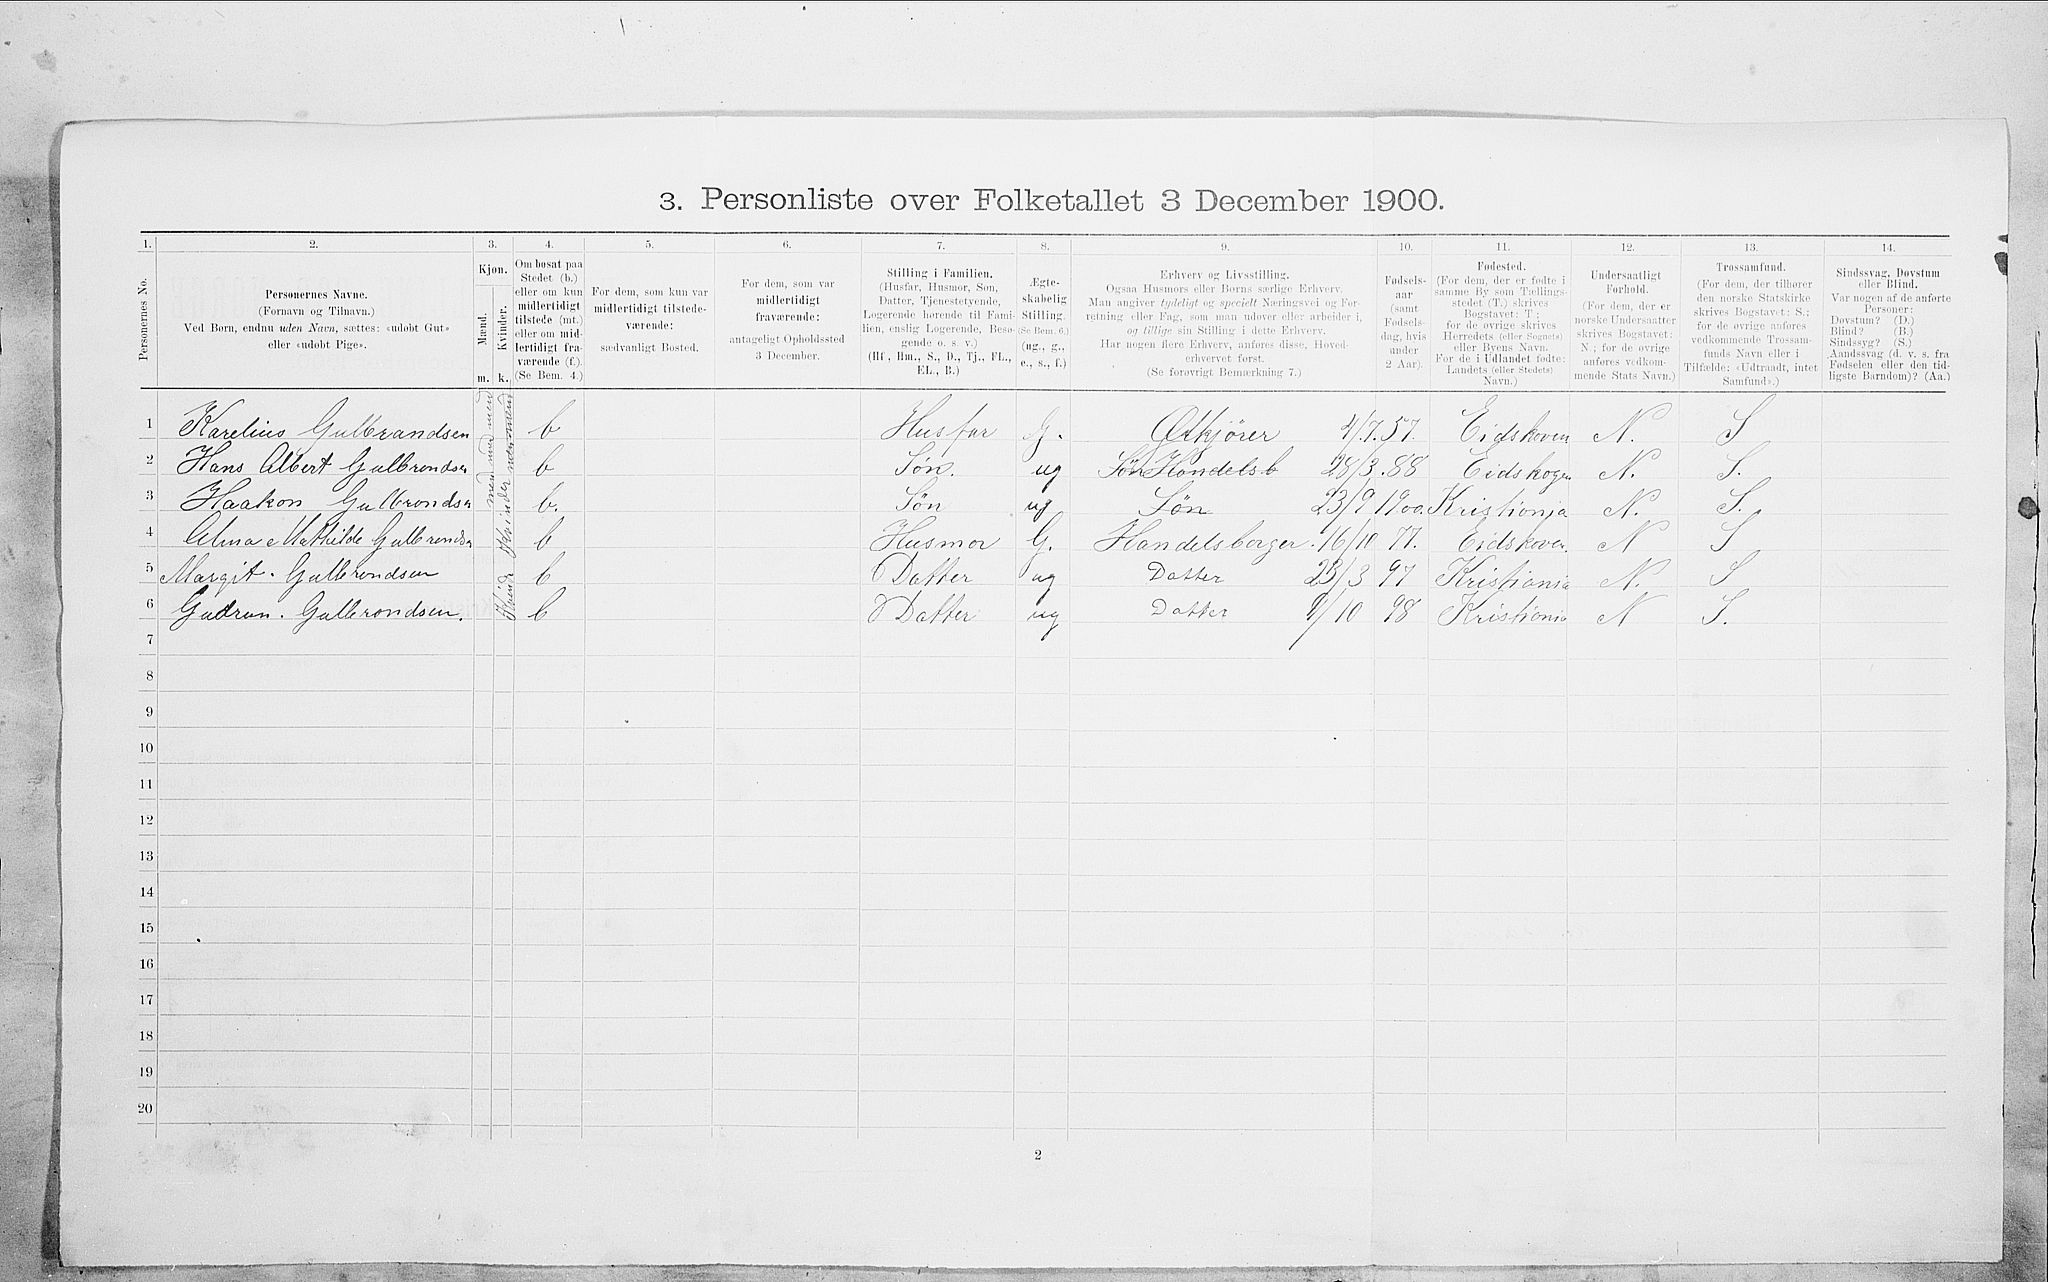 3. Personliste over Folketallet 3 December 1900.
1. 2. 3. 4. 5. 6. 7. 8. 9. 10. 11. 12. 13. 14.
Personernes No.
Personernes Navne.
(Fornavn og Tilnavn.)
Ved Børn, endnu uden Navn, sættes: «udøbt Gut»
eller «udøbt Pige».
Kjøn.
Mænd.
Kvinder.
m. k.
Om bosat paa
Stedet (b.)
eller om kun
midlertidigt
tilstede (mt.)
eller om mid-
lertidigt fra-
værende (f.).
(Se Bem. 4.)
For dem, som kun var
midlertidigt tilstede-
værende:
sædvanligt Bosted.
For dem, som var
midlertidigt
fraværende:
antageligt Opholdssted
3 December.
Stilling i Familien.
(Husfar, Husmor, Søn,
Datter, Tjenestetyende,
Logerende hørende til Fami-
lien, enslig Logerende, Besø-
gende o. s. v.)
(Hf., Hm., S., D., Tj., FL.,
EL., B.)
Ægte-
skabelig
Stilling.
(Se Bem. 6.)
(ug., g.,
e., s., f.)
Erhverv og Livsstilling.
Ogsaa Husmors eller Børns særlige Erhverv.
Man angiver tydeligt og specielt Næringsvei og For-
retning eller Fag, som man udøver eller arbeider i,
og tillige sin Stilling i dette Erhverv.
Har nogen flere Erhverv, anføres disse, Hoved-
erhvervet først.
(Se forøvrigt Bemærkning 7.)
Fødsels-
aar
(samt
Fødsels-
dag, hvis
under
2 Aar).
Fødested.
(For dem, der er fødte i
samme By som Tællings-
stedet (T.) skrives
Bogstavet: T;
for de øvrige skrives
Herredets (eller Sognets)
eller Byens Navn.
For de i Udlandet fødte:
Landets (eller Stedets)
Navn.)
Undersaatligt
Forhold.
(For dem, der er
norske Undersaatter
skrives Bogstavet:
N.; for de øvrige
anføres vedkom-
mende Stats Navn.)
Trossamfund.
(For dem, der tilhører
den norske Statskirke
skrives Bogstavet: S.;
for de øvrige anføres
vedkommende Trossam-
funds Navn eller i
Tilfælde: «Udtraadt, intet
Samfund».)
Sindssvag, Døvstum
eller Blind.
Var nogen af de anførte
Personer:
Døvstum? (D.)
Blind? (B.)
Sindssyg? (S.)
Aandssvag (d. v. s. fra
Fødselen eller den tid-
ligste Barndom)? (Aa.)
1 Karelius Gulbrandsen b Husfar G. Ølkjører 4/7.57. Eidskoven N. S
2 Hans Albert Gulbrandsen b Søn. ug Søn Handelsb 28/3.88 Eidskogen N. S.
3 Haakon Gulbrandsen b. Søn ug Søn 23/9 1900 Kristianja N. S.
4 Alma Mathilde Gulbrandsen b Husmor G. Handelsborger. 16/10 77. Eidskoven N S
5 Margit. Gulbrandsen b Datter ug Datter 23/3 97 Kristiania N. S
6 Gudrun. Gulbrandsen. b Datter ug Datter 9/10 98 Kristiania N S.
7
8
9
10
11
12
13
14
15
16
17
18
19
20
2